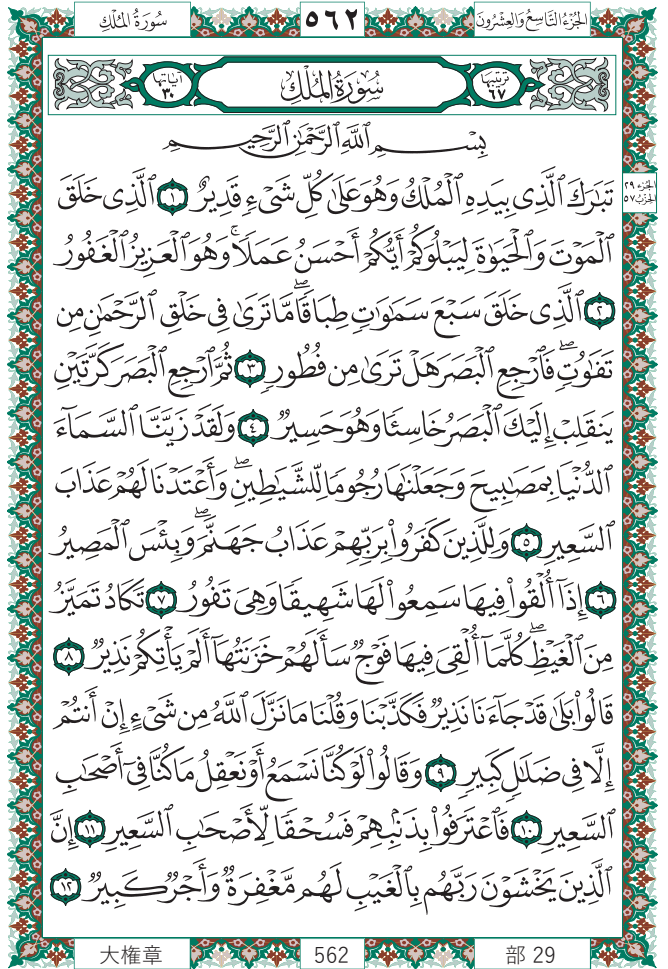 سُورَةُ المُلْكِ ٥٦٢ الجُزْءُ التَّاسِعُ وَالعِشْرُونَ
ترتيبها ٦٧ سُورَةُ المُلْكِ آياتها ٣٠
بِسْمِ ٱللَّهِ ٱلرَّحْمَٰنِ ٱلرَّحِيمِ
تَبَٰرَكَ ٱلَّذِى بِيَدِهِ ٱلْمُلْكُ وَهُوَ عَلَىٰ كُلِّ شَىْءٍ قَدِيرٌ ١ ٱلَّذِى خَلَقَ
الجزء ٢٩
الحزب ٥٧
ٱلْمَوْتَ وَٱلْحَيَوٰةَ لِيَبْلُوَكُمْ أَيُّكُمْ أَحْسَنُ عَمَلًا ۚ وَهُوَ ٱلْعَزِيزُ ٱلْغَفُورُ
٢ ٱلَّذِى خَلَقَ سَبْعَ سَمَٰوَٰتٍ طِبَاقًا ۖ مَّا تَرَىٰ فِى خَلْقِ ٱلرَّحْمَٰنِ مِن
تَفَٰوُتٍ ۖ فَٱرْجِعِ ٱلْبَصَرَ هَلْ تَرَىٰ مِن فُطُورٍ ٣ ثُمَّ ٱرْجِعِ ٱلْبَصَرَ كَرَّتَيْنِ
يَنقَلِبْ إِلَيْكَ ٱلْبَصَرُ خَاسِئًا وَهُوَ حَسِيرٌ ٤ وَلَقَدْ زَيَّنَّا ٱلسَّمَآءَ
ٱلدُّنْيَا بِمَصَٰبِيحَ وَجَعَلْنَٰهَا رُجُومًا لِّلشَّيَٰطِينِ ۖ وَأَعْتَدْنَا لَهُمْ عَذَابَ
ٱلسَّعِيرِ ٥ وَلِلَّذِينَ كَفَرُوا۟ بِرَبِّهِمْ عَذَابُ جَهَنَّمَ ۖ وَبِئْسَ ٱلْمَصِيرُ
٦ إِذَآ أُلْقُوا۟ فِيهَا سَمِعُوا۟ لَهَا شَهِيقًا وَهِىَ تَفُورُ ٧ تَكَادُ تَمَيَّزُ
مِنَ ٱلْغَيْظِ ۖ كُلَّمَآ أُلْقِىَ فِيهَا فَوْجٌ سَأَلَهُمْ خَزَنَتُهَآ أَلَمْ يَأْتِكُمْ نَذِيرٌ ٨
قَالُوا۟ بَلَىٰ قَدْ جَآءَنَا نَذِيرٌ فَكَذَّبْنَا وَقُلْنَا مَا نَزَّلَ ٱللَّهُ مِن شَىْءٍ إِنْ أَنتُمْ
إِلَّا فِى ضَلَٰلٍ كَبِيرٍ ٩ وَقَالُوا۟ لَوْ كُنَّا نَسْمَعُ أَوْ نَعْقِلُ مَا كُنَّا فِىٓ أَصْحَٰبِ
ٱلسَّعِيرِ ١٠ فَٱعْتَرَفُوا۟ بِذَنۢبِهِمْ فَسُحْقًا لِّأَصْحَٰبِ ٱلسَّعِيرِ ١١ إِنَّ
ٱلَّذِينَ يَخْشَوْنَ رَبَّهُم بِٱلْغَيْبِ لَهُم مَّغْفِرَةٌ وَأَجْرٌ كَبِيرٌ ١٢
大権章 562 部 29